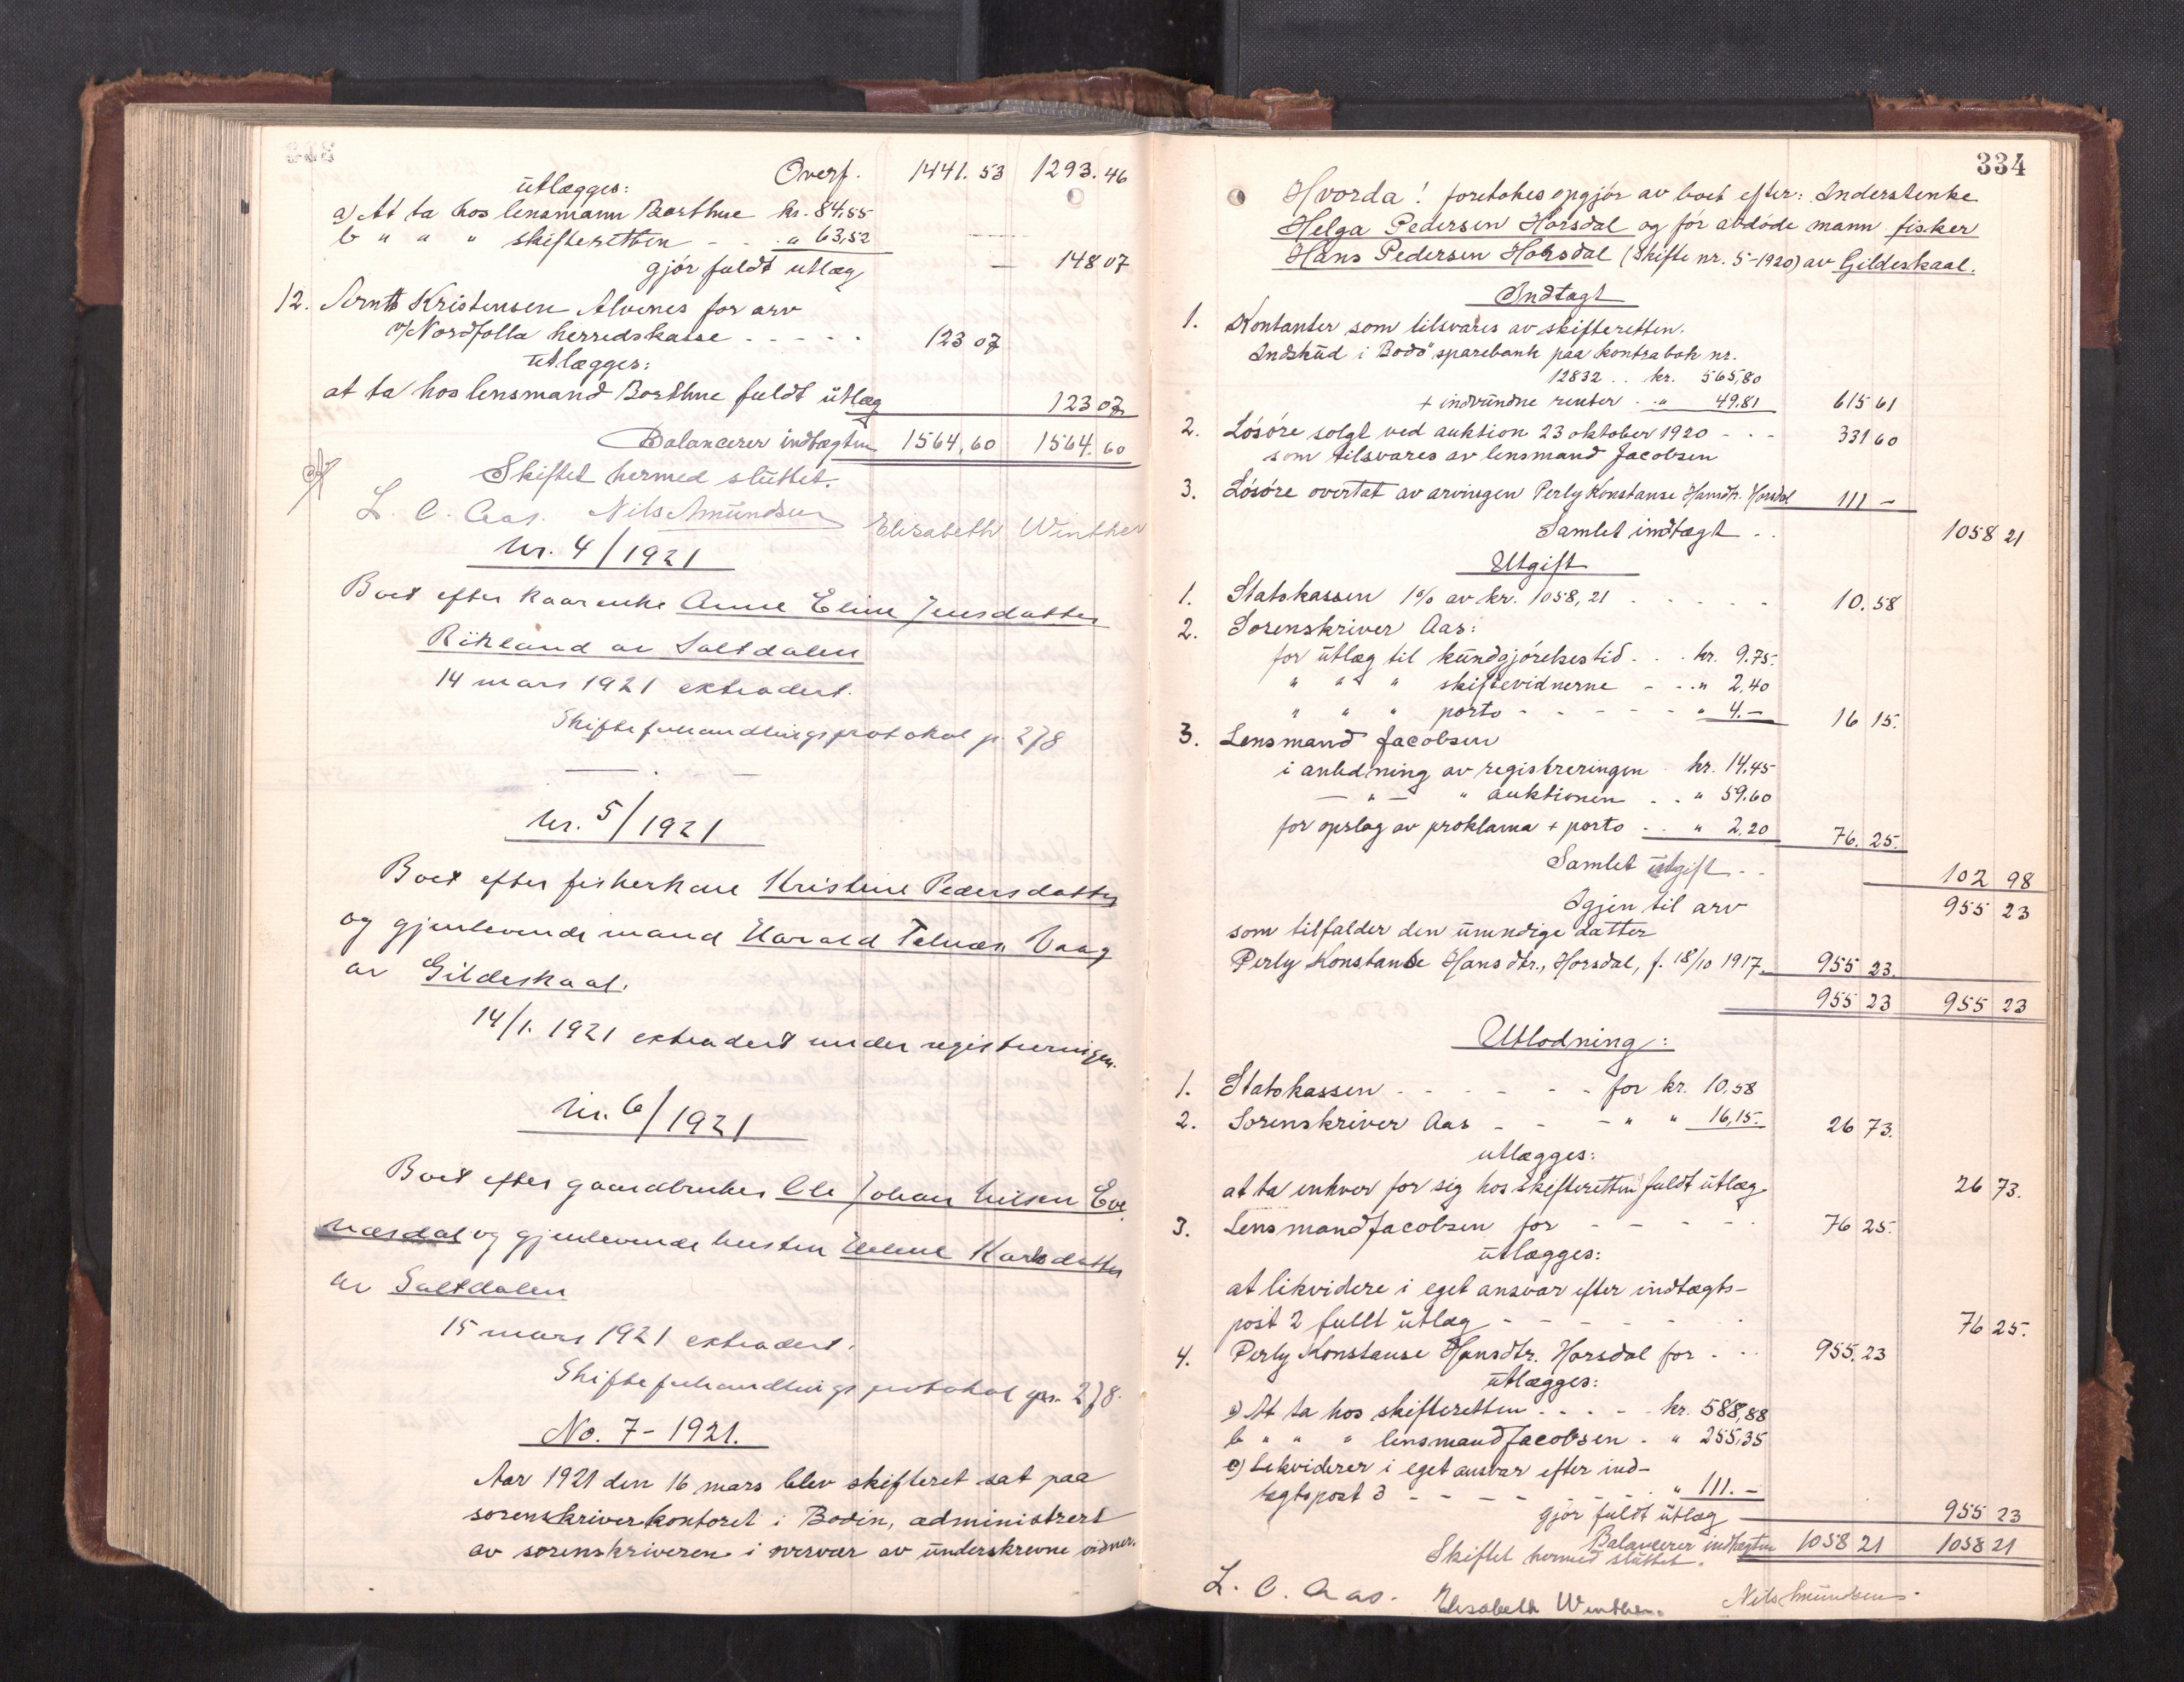 Overf. 1441.53 1293.46
utlægges:
a) At ta hos lensmann Borthue kr. 84,55
b " " " skifteretten - - " 63,52
gjør fuldt utlæg — 148 07
12. Arnt Kristensen Alvenes for arv
v/Nordfolla herredskasse - - - - - 123 07
utlægges:
at ta hos lensmand Borthue fuldt utlæg 123 07
Balancerer indtægten 1564,60 1564.60
Skiftet hermed sluttet.
L. C. Aas. Nils Amundsen Elisabeth Winther
Nr. 4/1921
Boet efter kaarenke Anne Eline Jensdatter
Røkland av Saltdalen
14 mars 1921 extradert.
Skifteforhandlingsprotokol p. 278
Nr. 5/1921
Boet efter fiskerkone Kristine Pedersdatter
og gjenlevende mand Harald Vaag
av Gildeskaal.
14/1. 1921 extradert under registreringen.
Nr. 6/1921
Boet efter gaardbruker Ole Johan Nilsen Eve
næsdal og gjenlevende hustru Karlsdatter
av Saltdalen
15 mars 1921 extradert.
Skifteforhandlingsprotokol 278.
No. 7 - 1921.
Aar 1921 den 16 mars blev skifteret sat paa
sorenskriverkontoret i Bodin, administrert
av sorenskriveren i overvær av underskrevne vidner.
334
Hvorda! foretokes opgjør av boet efter: Inderstenke
Helga Pedersen Horsdal og før avdøde mann fisker
Hans Pedersen Horsdal (Skifte nr. 5-1920) av Gildeskaal.
Indtægt
1. Kontanter som tilsvares av skifteretten.
Indskud i Bodø sparebank paa kontrabok nr.
12832 . . kr. 565,80
+ indvundne renter . . " 49.81 615 61
2. Løsøre solgt ved auktion 23 oktober 1920 - - - 331 60
som tilsvares av lensmand Jacobsen
3. Løsøre overtat av arvingen Perly Konstanse Hansdtr. Horsdal 111 -
Samlet indtægt . . 1058 21
Utgift
1. Statskassen 1% av kr. 1058,21 - - - - - 10.58
2. Sorenskriver Aas:
for utlæg til kundgjørelsestid . . . kr. 9.75.
" " " skiftevidnerne - - . " 2,40
" " " porto - - - - - " 4.- 16 15.
3. Lensmand Jacobsen
i anledning av registreringen . kr. 14,45
— " — " auktionen . . " 59.60
for opslag av proklama + porto . . " 2,20 76. 25.
Samlet utgift - - 102 98
Igjen til arv 955 23
som tilfalder den umyndige datter
Perly Konstanse Hansdtr., Horsdal, f. 18/10 1917. 955 23.
955 23 955 23
Utlodning:
1. Statskassen - - - - - - for kr. 10,58
2. Sorenskriver Aas - - - " " 16,15. 26 73.
utlægges:
at ta enhver for sig hos skifteretten fuldt utlæg 26 73.
3. Lensmand Jacobsen for - - - - - 76 25.
utlægges:
at likvidere i eget ansvar efter indtægts-
post 2 fullt utlæg - - - - - - 76 25.
4. Perly Konstanse Hansdtr. Horsdal for - - - 955.23
utlægges:
a) At ta hos skifteretten . . . - - kr. 588,88
b " " " lensmand Jacobsen - " 255,35
c) Likviderer i eget ansvar efter ind-
tægtspost 3 - - - - - - " 111. -
gjør fuldt utlæg 955 23
Balancerer indtægten 1058 21 1058 21
Skiftet hermed sluttet.
L. C. Aas. Elisabeth Winther. Nils Amundsen.